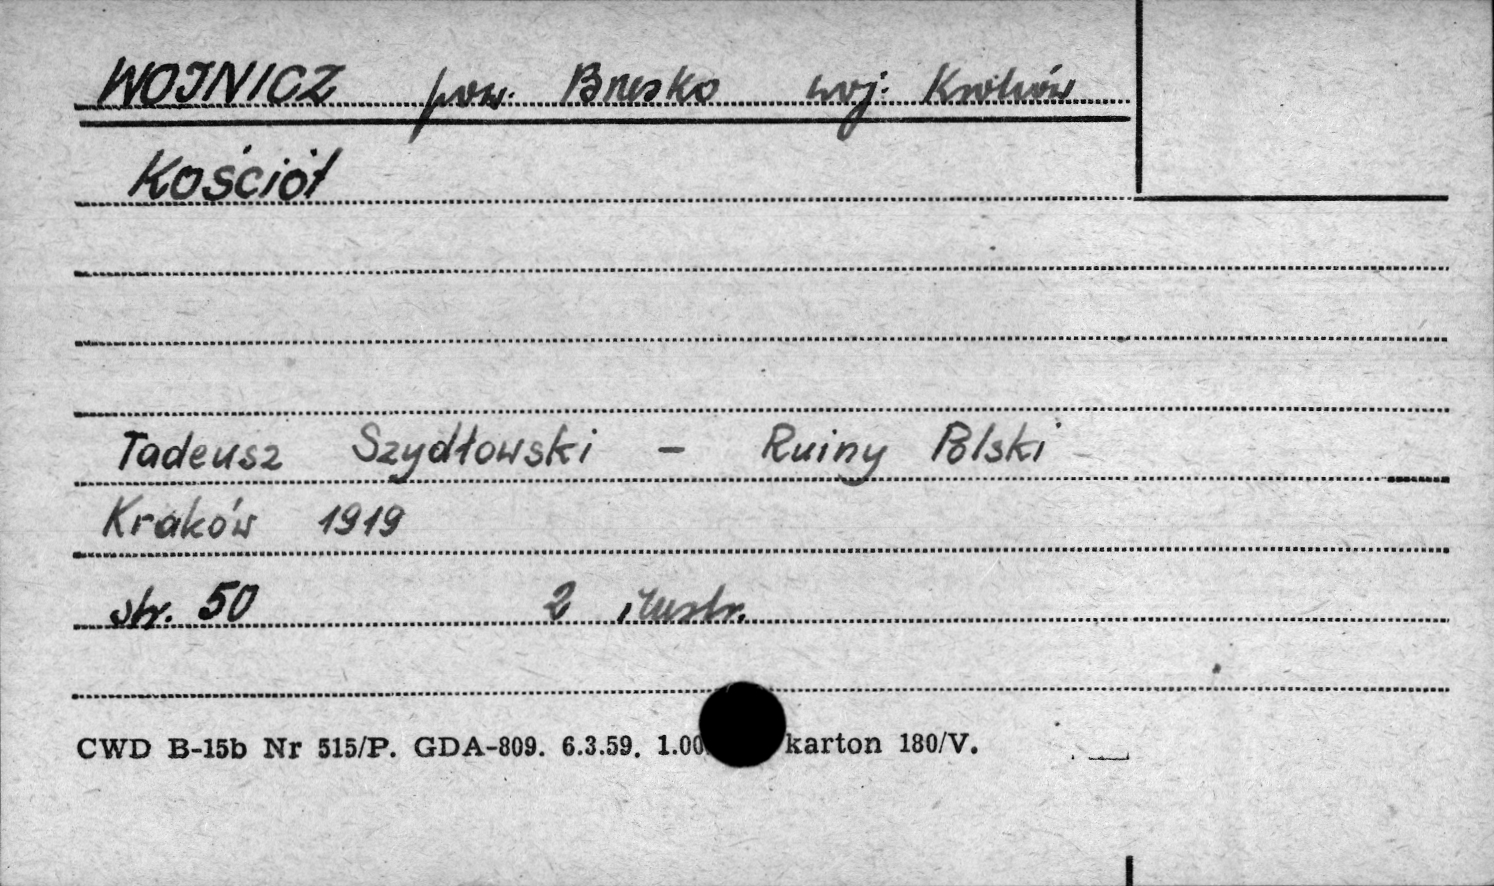 WOJNICZ pow. Brzesko woj. Kraków
Kościół
Tadeusz Szydłowski - Ruiny Polski
Kraków 1919
str. 50 2 ilustr.
CWD B-15b Nr 515/P. GDA-809. 6.3.59. 1.00 karton 180/V.